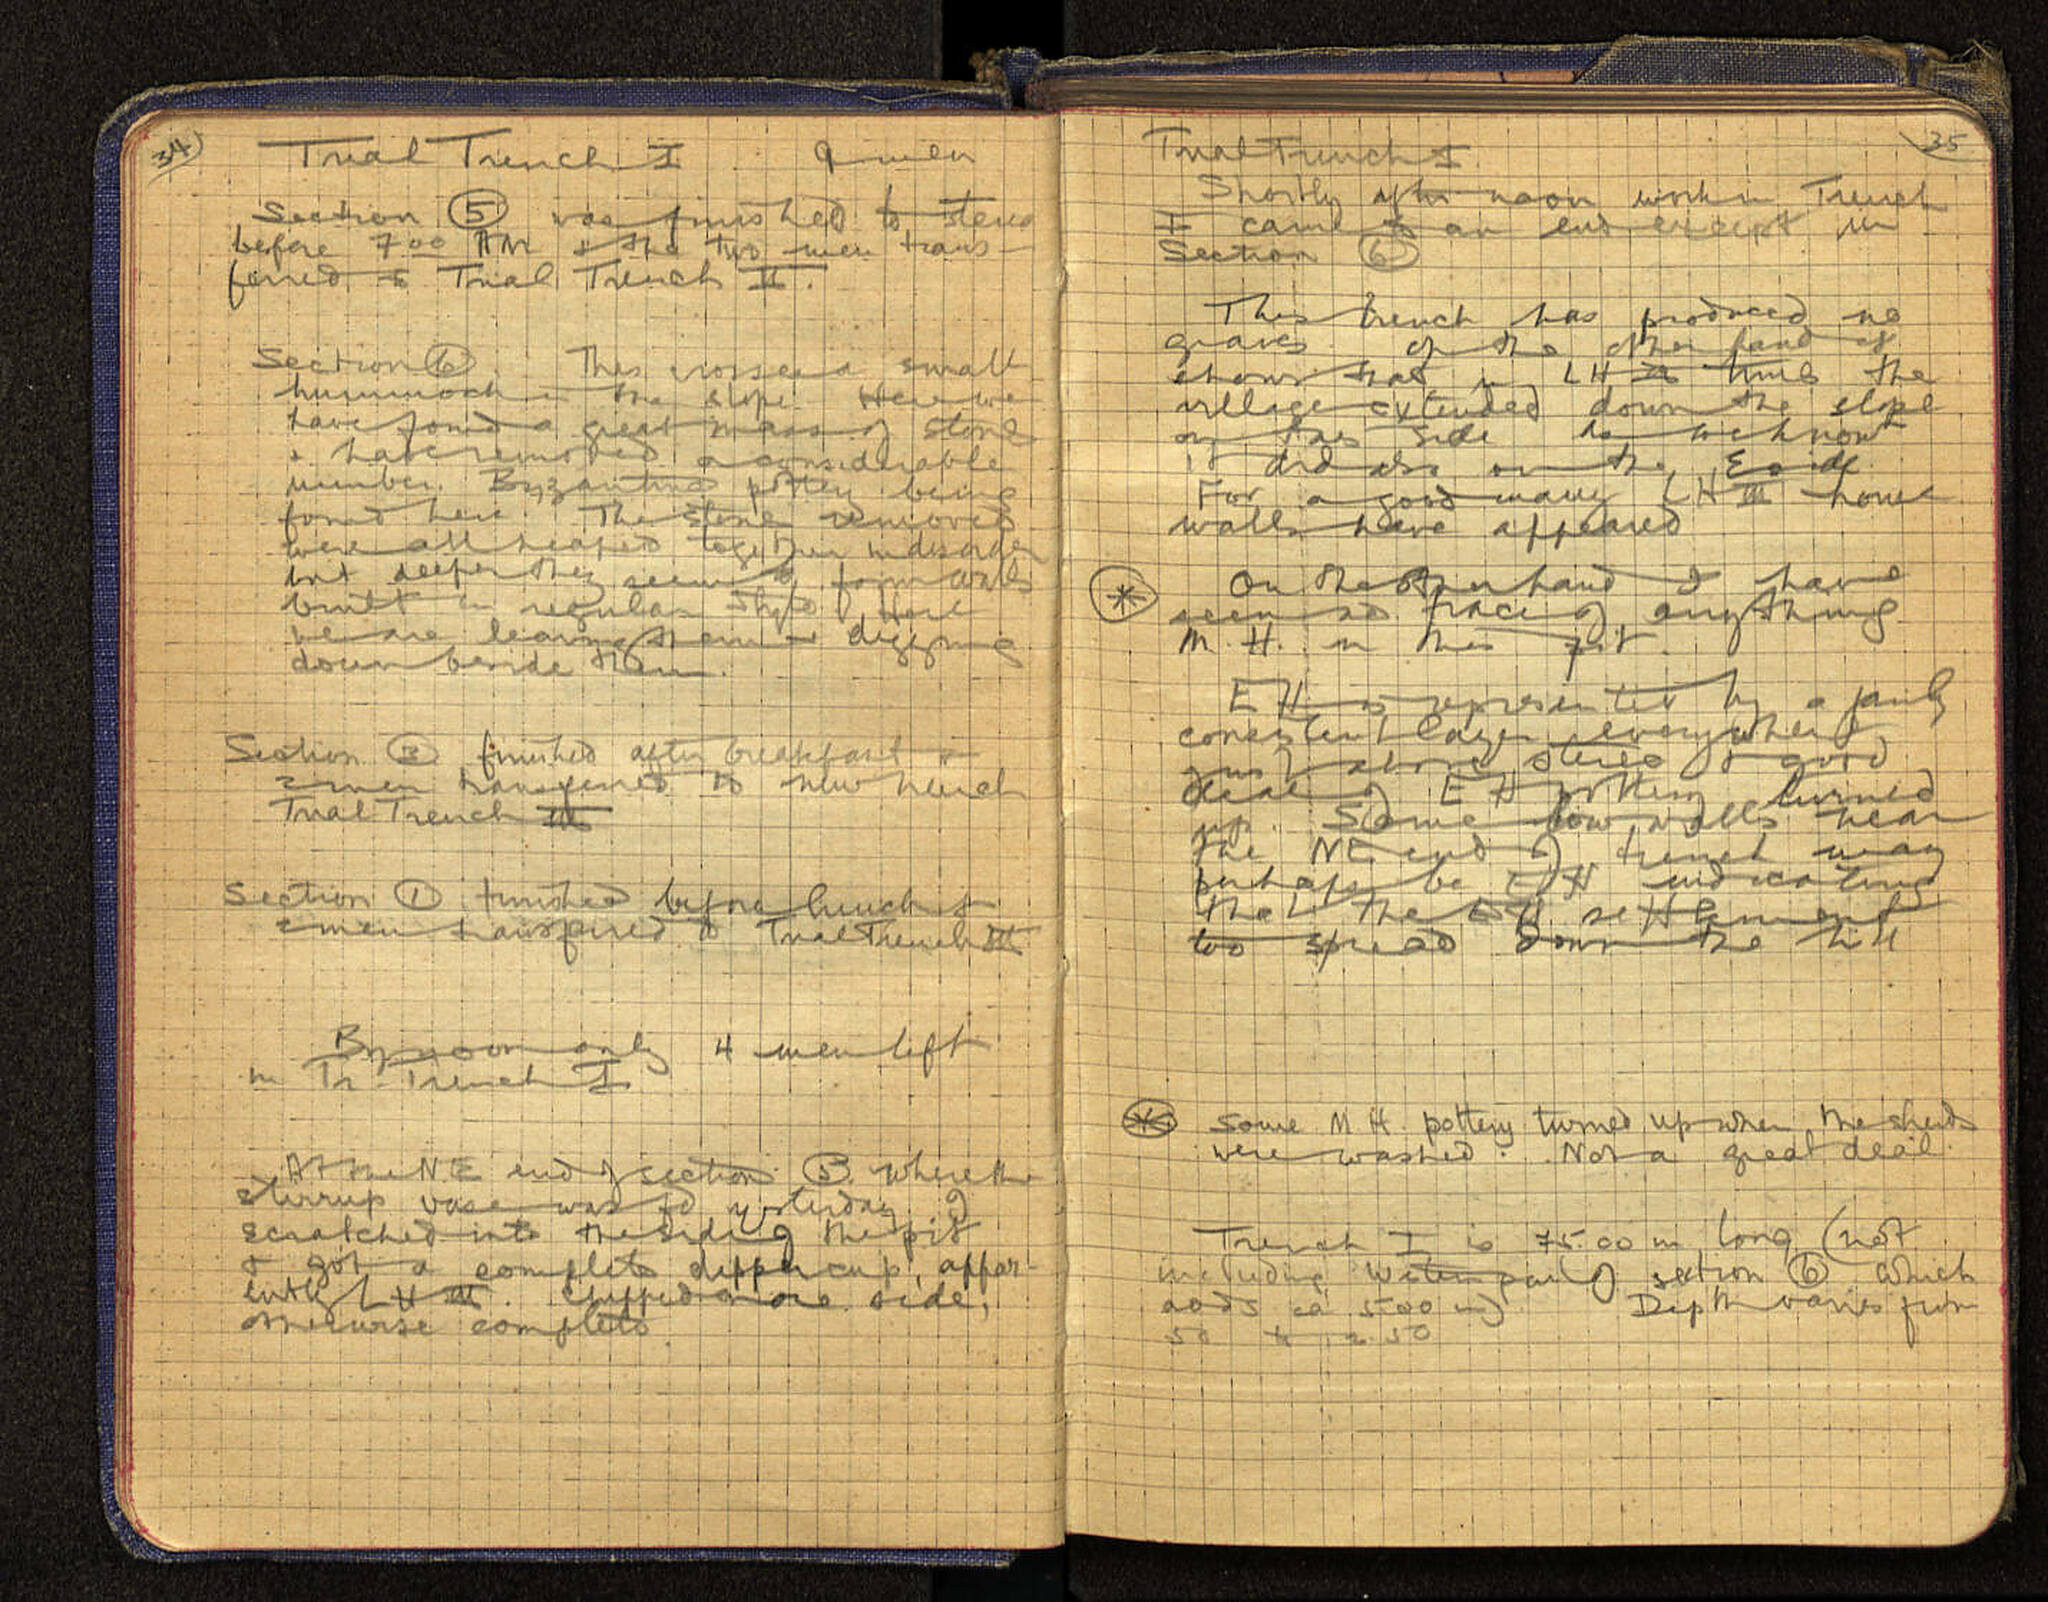 34
Trial Trench I 9 men
Section ⑤ was finished to stereo
before 7 00 AM & the two men trans-
ferred to Trial Trench II.
Section ⑥. This crossed a small
hummock in the slope. Here we
have found a great mass of stones
& have removed a considerable
number. Byzantine pottery being
found here. The stones removed
were all heaped together in disorder
but deeper they seem to form walls
built in regular style. Here
we are leaving them & digging
down beside them.
Section ③ finished after breakfast &
2 men transferred to new trench
Trial Trench III
Section ① finished before lunch &
2 men transferred to Trial Trench III
By noon only 4 men left
in Tr. Trench I
At the NE end of section ⑤ where the
stirrup vase was fd yesterday I
scratched into the side of the pit
& got a complete dipper cup, appar-
ently LH III. Chipped on one side,
otherwise complete.
35
Trial Trench I
Shortly after noon work in Trench
I came to an end except in
Section ⑥
This trench has produced no
graves. On the other hand it
shows that in LH III times the
village extended down the slope
on this side as we know
it did also on the E side.
For a good many LH III house
walls have appeared
* On the other hand I have
seen no trace of anything
M.H. in this pit.
EH is represented by a fairly
consistent layer everywhere
just above stereo & good
deal of EH pottery turned
up. Some low walls near
the NE end of trench may
perhaps be EH indicating
that the EH settlement
too spread down the hill
* Some M.H. pottery turned up when the sherds
were washed. Not a great deal.
Trench I is 75.00 m long (not
including Western part of section ⑥ which
adds ca 5.00 m) Depth varies from
.50 to 2.50